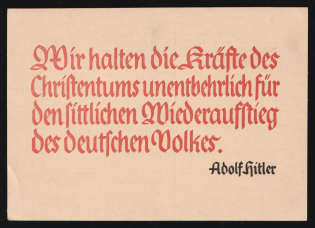 Wir halten die Kräfte des
Christentums unentbehrlich für
den sittlichen Wiederaufstieg
des deutschen Volkes.
Adolf Hitler